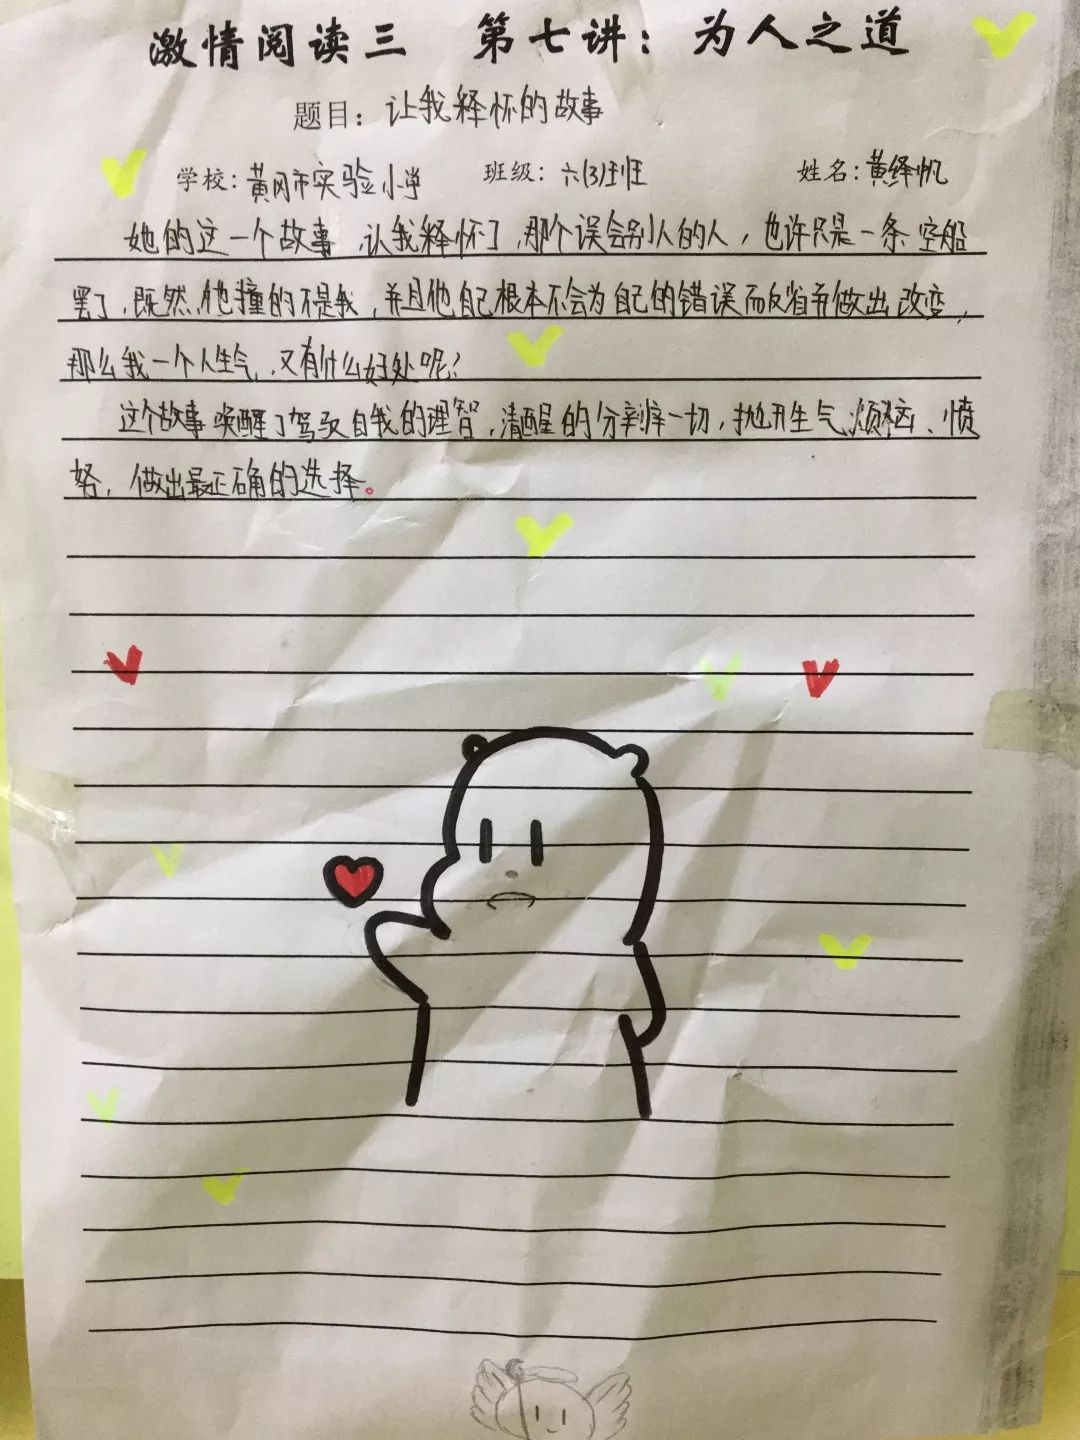 激情阅读三 第七讲：为人之道
题目：让我释怀的故事
学校：黄冈市实验小学 班级：六(3)班 姓名：黄绎帆
她的这一个故事,让我释怀了,那个误会别人的人，也许只是一条空船
罢了,既然他撞的不是我,并且他自己根本不会为自己的错误而反省并做出改变,
那么我一个人生气,又有什么好处呢?
这个故事唤醒了驾驭自我的理智,清醒的分辨一切,抛开生气、烦恼、愤
努,做出最正确的选择。